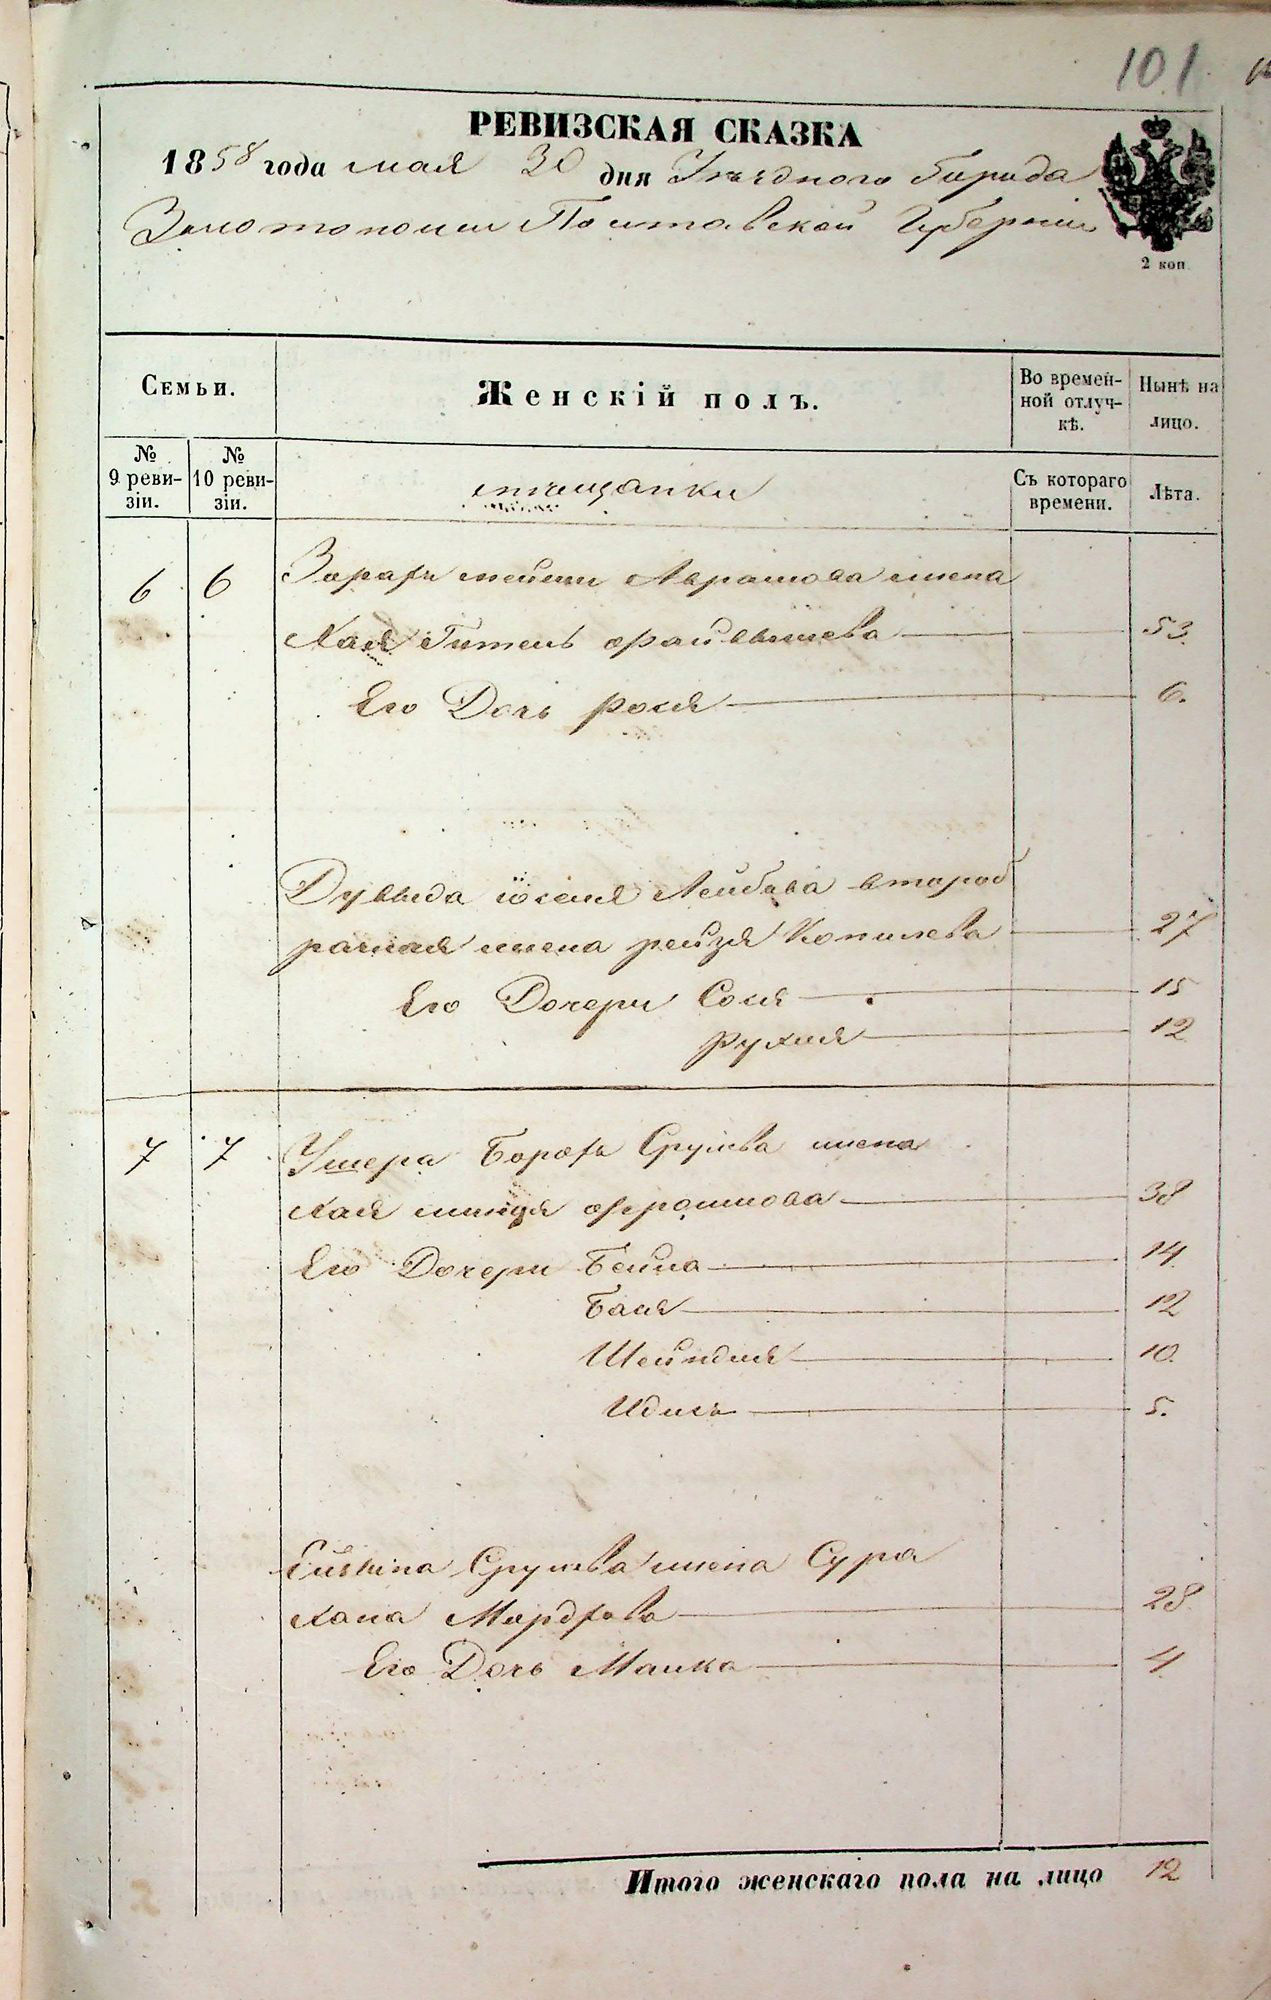 101
РЕВИЗСКАЯ СКАЗКА
1858 года мая 30 дня Уѣзднаго Города
Золотоноши Полтавской Губерніи
2 коп
Семьи.
Женскій полъ.
Во времен-
ной отлуч-
кѣ.
Нынѣ на
лицо.
№
9 реви-
зіи.
№
10 реви-
зіи.
мѣщанки
Съ котораго
времени.
Лѣта.
6 6 Аврамова жена
Хая Гитель 53.
Его Дочь рохля 6.
Лейбова второб
рачная жена рейзя Копилева 27
Его Дочери Сося 15
рухля 12
7 7 Ушера Борохъ Срулева жена
хая 38
Его Дочери Бейла 14
Бася 12
Шейндля 10.
Идись 5.
Срулева жена Сура
хана Мордхова 28
Его Дочь Малка 4
Итого женскаго пола на лицо 12